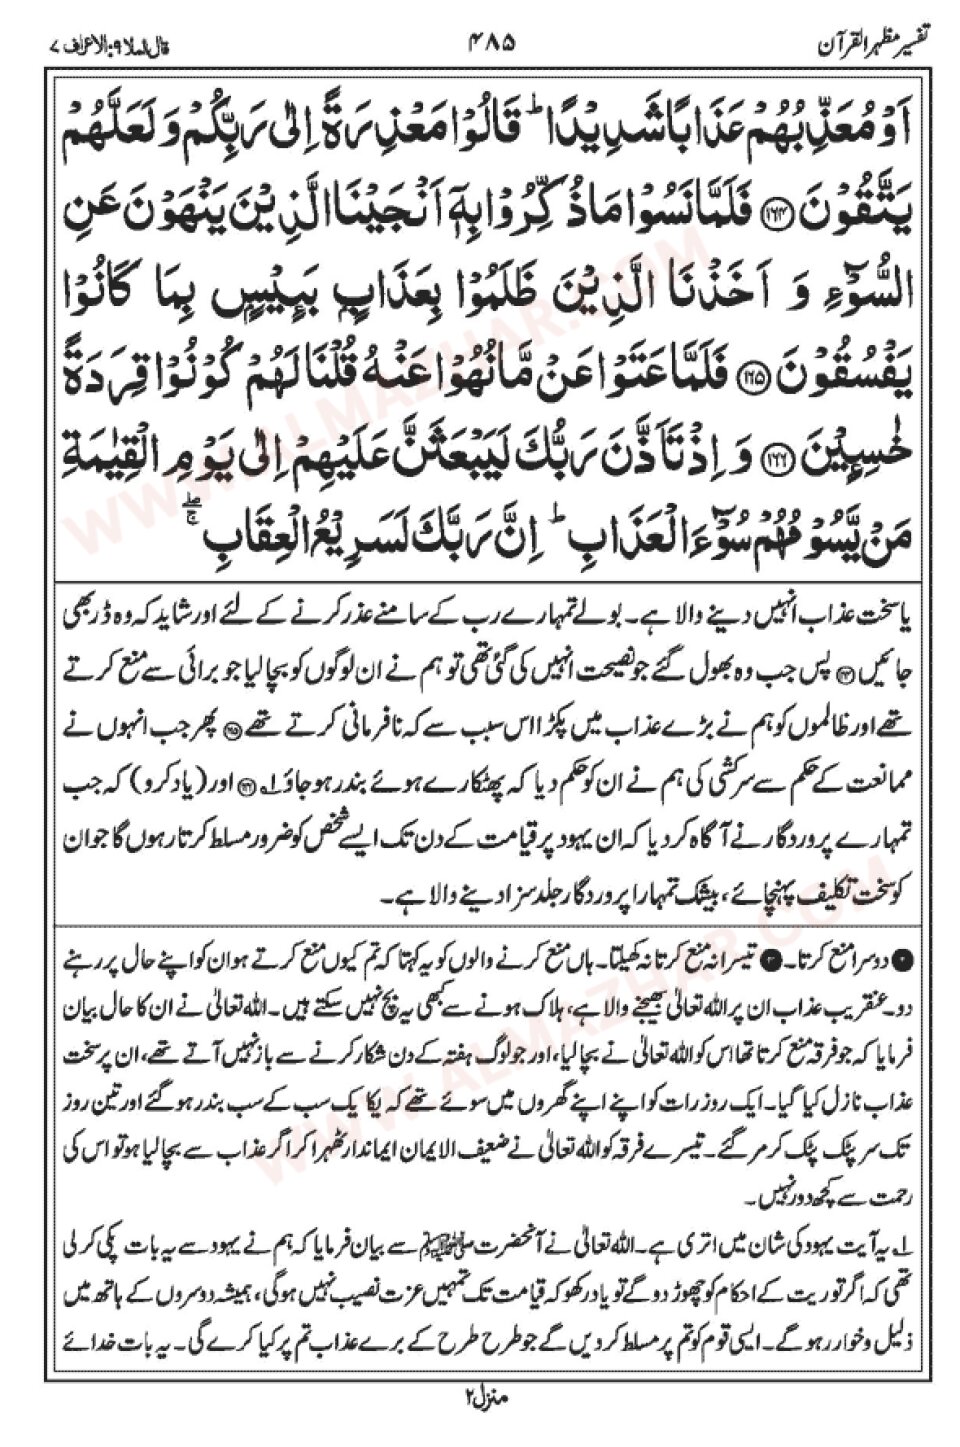 تفسیر مظہر القرآن
۴۸۵
قال الملا ۹: الاعراف ۷
اَوْ مُعَذِّبُهُمْ عَذَابًا شَدِيْدًا ؕ قَالُوْا مَعْذِرَةً اِلٰى رَبِّكُمْ وَ لَعَلَّهُمْ
يَتَّقُوْنَ ﴿۱۶۴﴾ فَلَمَّا نَسُوْا مَا ذُكِّرُوْا بِهٖۤ اَنْجَيْنَا الَّذِيْنَ يَنْهَوْنَ عَنِ
السُّوْٓءِ وَ اَخَذْنَا الَّذِيْنَ ظَلَمُوْا بِعَذَابٍۭ بَـِٔيْسٍۭ بِمَا كَانُوْا
يَفْسُقُوْنَ ﴿۱۶۵﴾ فَلَمَّا عَتَوْا عَنْ مَّا نُهُوْا عَنْهُ قُلْنَا لَهُمْ كُوْنُوْا قِرَدَةً
خٰسِـِٕيْنَ ﴿۱۶۶﴾ وَ اِذْ تَاَذَّنَ رَبُّكَ لَيَبْعَثَنَّ عَلَيْهِمْ اِلٰى يَوْمِ الْقِيٰمَةِ
مَنْ يَّسُوْمُهُمْ سُوْٓءَ الْعَذَابِ ؕ اِنَّ رَبَّكَ لَسَرِيْعُ الْعِقَابِ ۖۚ
یا سخت عذاب انہیں دینے والا ہے۔ بولے تمہارے رب کے سامنے عذر کرنے کے لئے اور شاید کہ وہ ڈر بھی
جائیں ﴿۱۶۴﴾ پس جب وہ بھول گئے جو نصیحت انہیں کی گئی تھی تو ہم نے ان لوگوں کو بچا لیا جو برائی سے منع کرتے
تھے اور ظالموں کو ہم نے بڑے عذاب میں پکڑا اس سبب سے کہ نافرمانی کرتے تھے ﴿۱۶۵﴾ پھر جب انہوں نے
ممانعت کے حکم سے سرکشی کی ہم نے ان کو حکم دیا کہ پھٹکارے ہوئے بندر ہو جاؤ ؂۱ ﴿۱۶۶﴾ اور (یاد کرو) کہ جب
تمہارے پروردگار نے آگاہ کر دیا کہ ان یہود پر قیامت کے دن تک ایسے شخص کو ضرور مسلط کرتا رہوں گا جو ان
کو سخت تکلیف پہنچائے، بیشک تمہارا پروردگار جلد سزا دینے والا ہے۔
❷ دوسرا منع کرتا۔ ❸ تیسرا نہ منع کرتا نہ کھیلتا۔ ہاں منع کرنے والوں کو یہ کہتا کہ تم کیوں منع کرتے ہو ان کو اپنے حال پر رہنے
دو۔ عنقریب عذاب ان پر اللہ تعالیٰ بھیجنے والا ہے، ہلاک ہونے سے کبھی یہ بچ نہیں سکتے ہیں۔ اللہ تعالیٰ نے ان کا حال بیان
فرمایا کہ جو فرقہ منع کرتا تھا اس کو اللہ تعالیٰ نے بچا لیا، اور جو لوگ ہفتہ کے دن شکار کرنے سے باز نہیں آتے تھے، ان پر سخت
عذاب نازل کیا گیا۔ ایک روز رات کو اپنے اپنے گھروں میں سوئے تھے کہ یکایک سب کے سب بندر ہو گئے اور تین روز
تک سر پٹک پٹک کر مر گئے۔ تیسرے فرقہ کو اللہ تعالیٰ نے ضعیف الایمان ایماندار ٹھہرا کر اگر عذاب سے بچا لیا ہو تو اس کی
رحمت سے کچھ دور نہیں۔
؂۱ یہ آیت یہود کی شان میں اتری ہے۔ اللہ تعالیٰ نے آنحضرت ﷺ سے بیان فرمایا کہ ہم نے یہود سے یہ بات پکی کر لی
تھی کہ اگر توریت کے احکام کو چھوڑ دو گے تو یاد رکھو کہ قیامت تک تمہیں عزت نصیب نہیں ہوگی، ہمیشہ دوسروں کے ہاتھ میں
ذلیل و خوار رہو گے۔ ایسی قوم کو تم پر مسلط کر دیں گے جو طرح طرح کے برے عذاب تم پر کیا کرے گی۔ یہ بات خدائے
منزل ۲
WWW.ALMAZHAR.COM
WWW.ALMAZHAR.COM